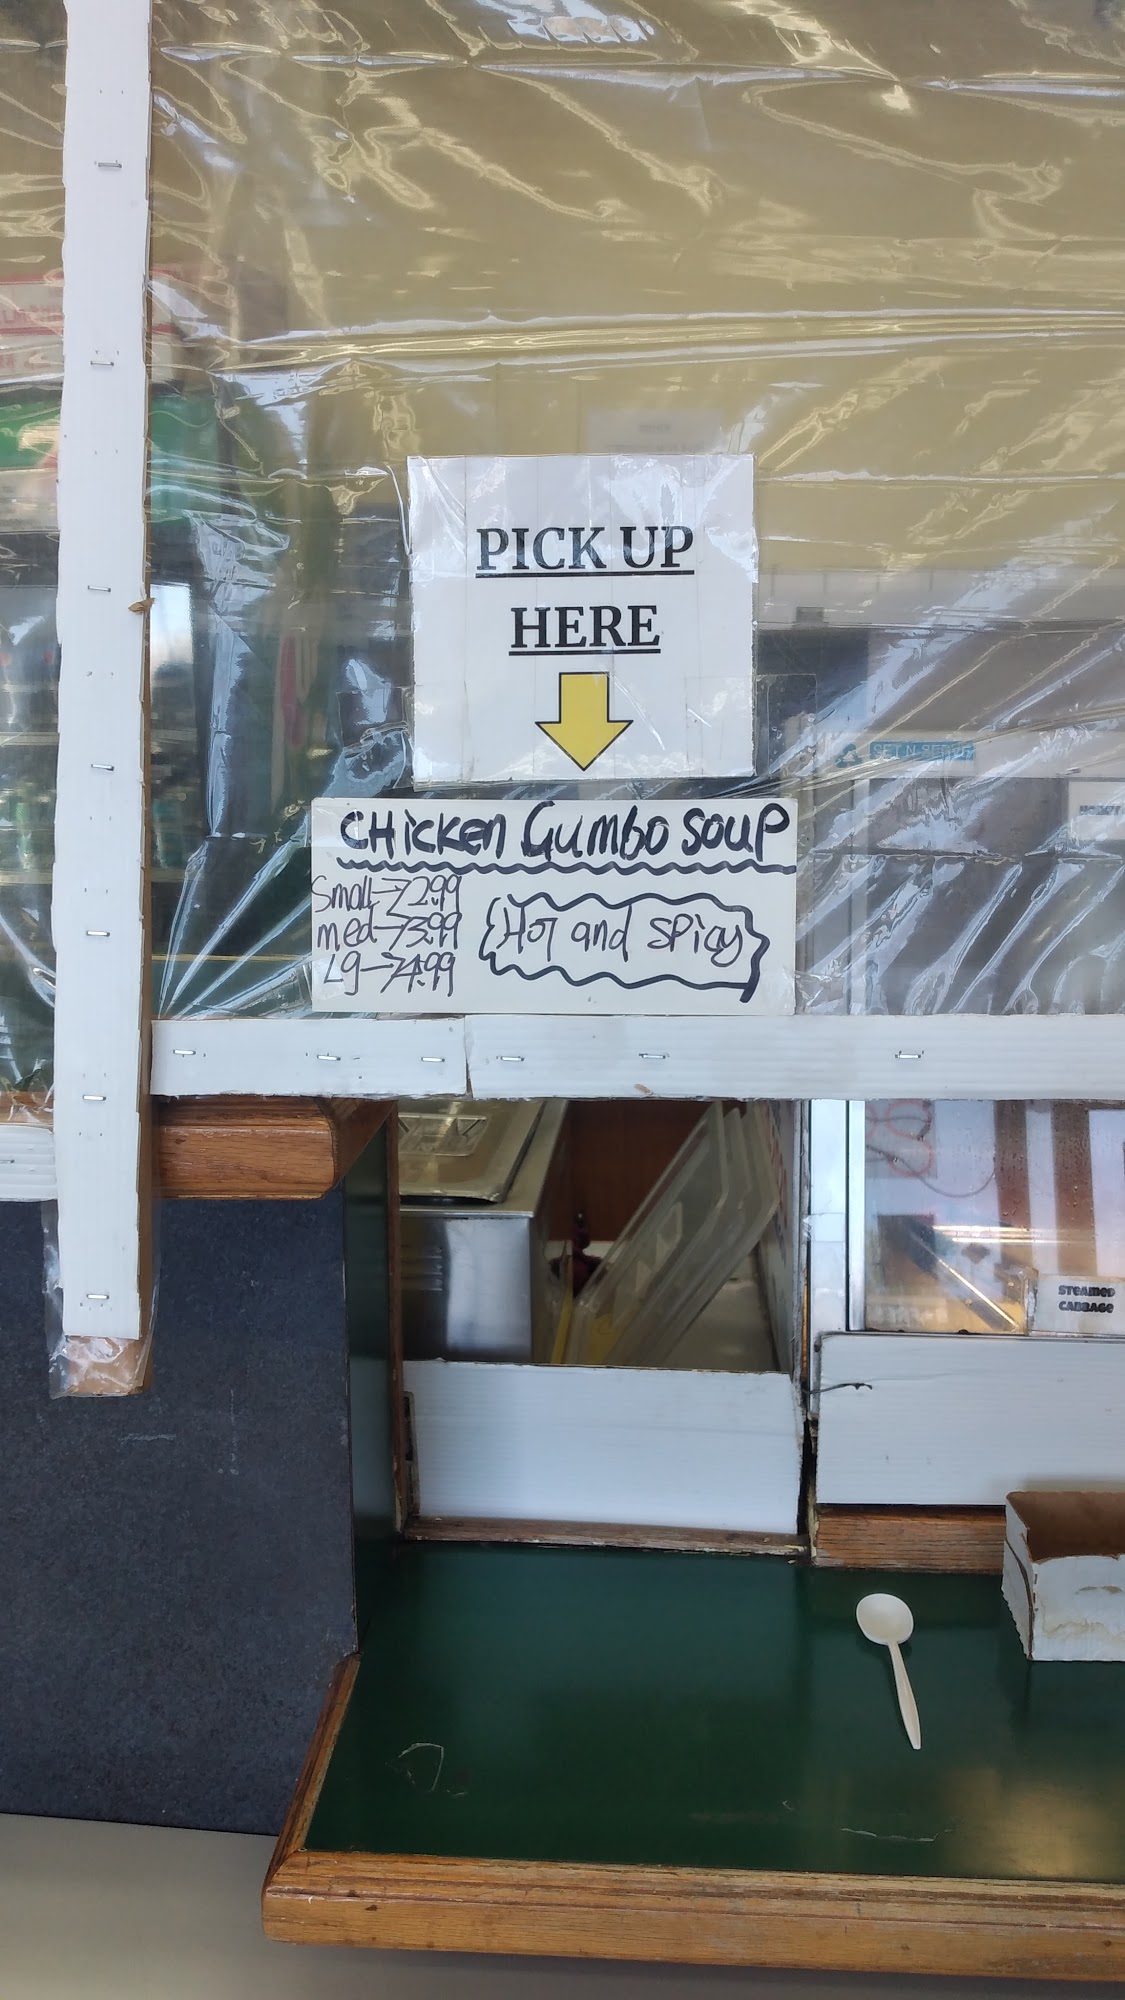 PICK UP
HERE
CHicken Gumbo SOUP
Small→2.99
med→3.99
Lg→4.99
Hot and spicy
SET N SERVE
STEAMED
CABBAGE